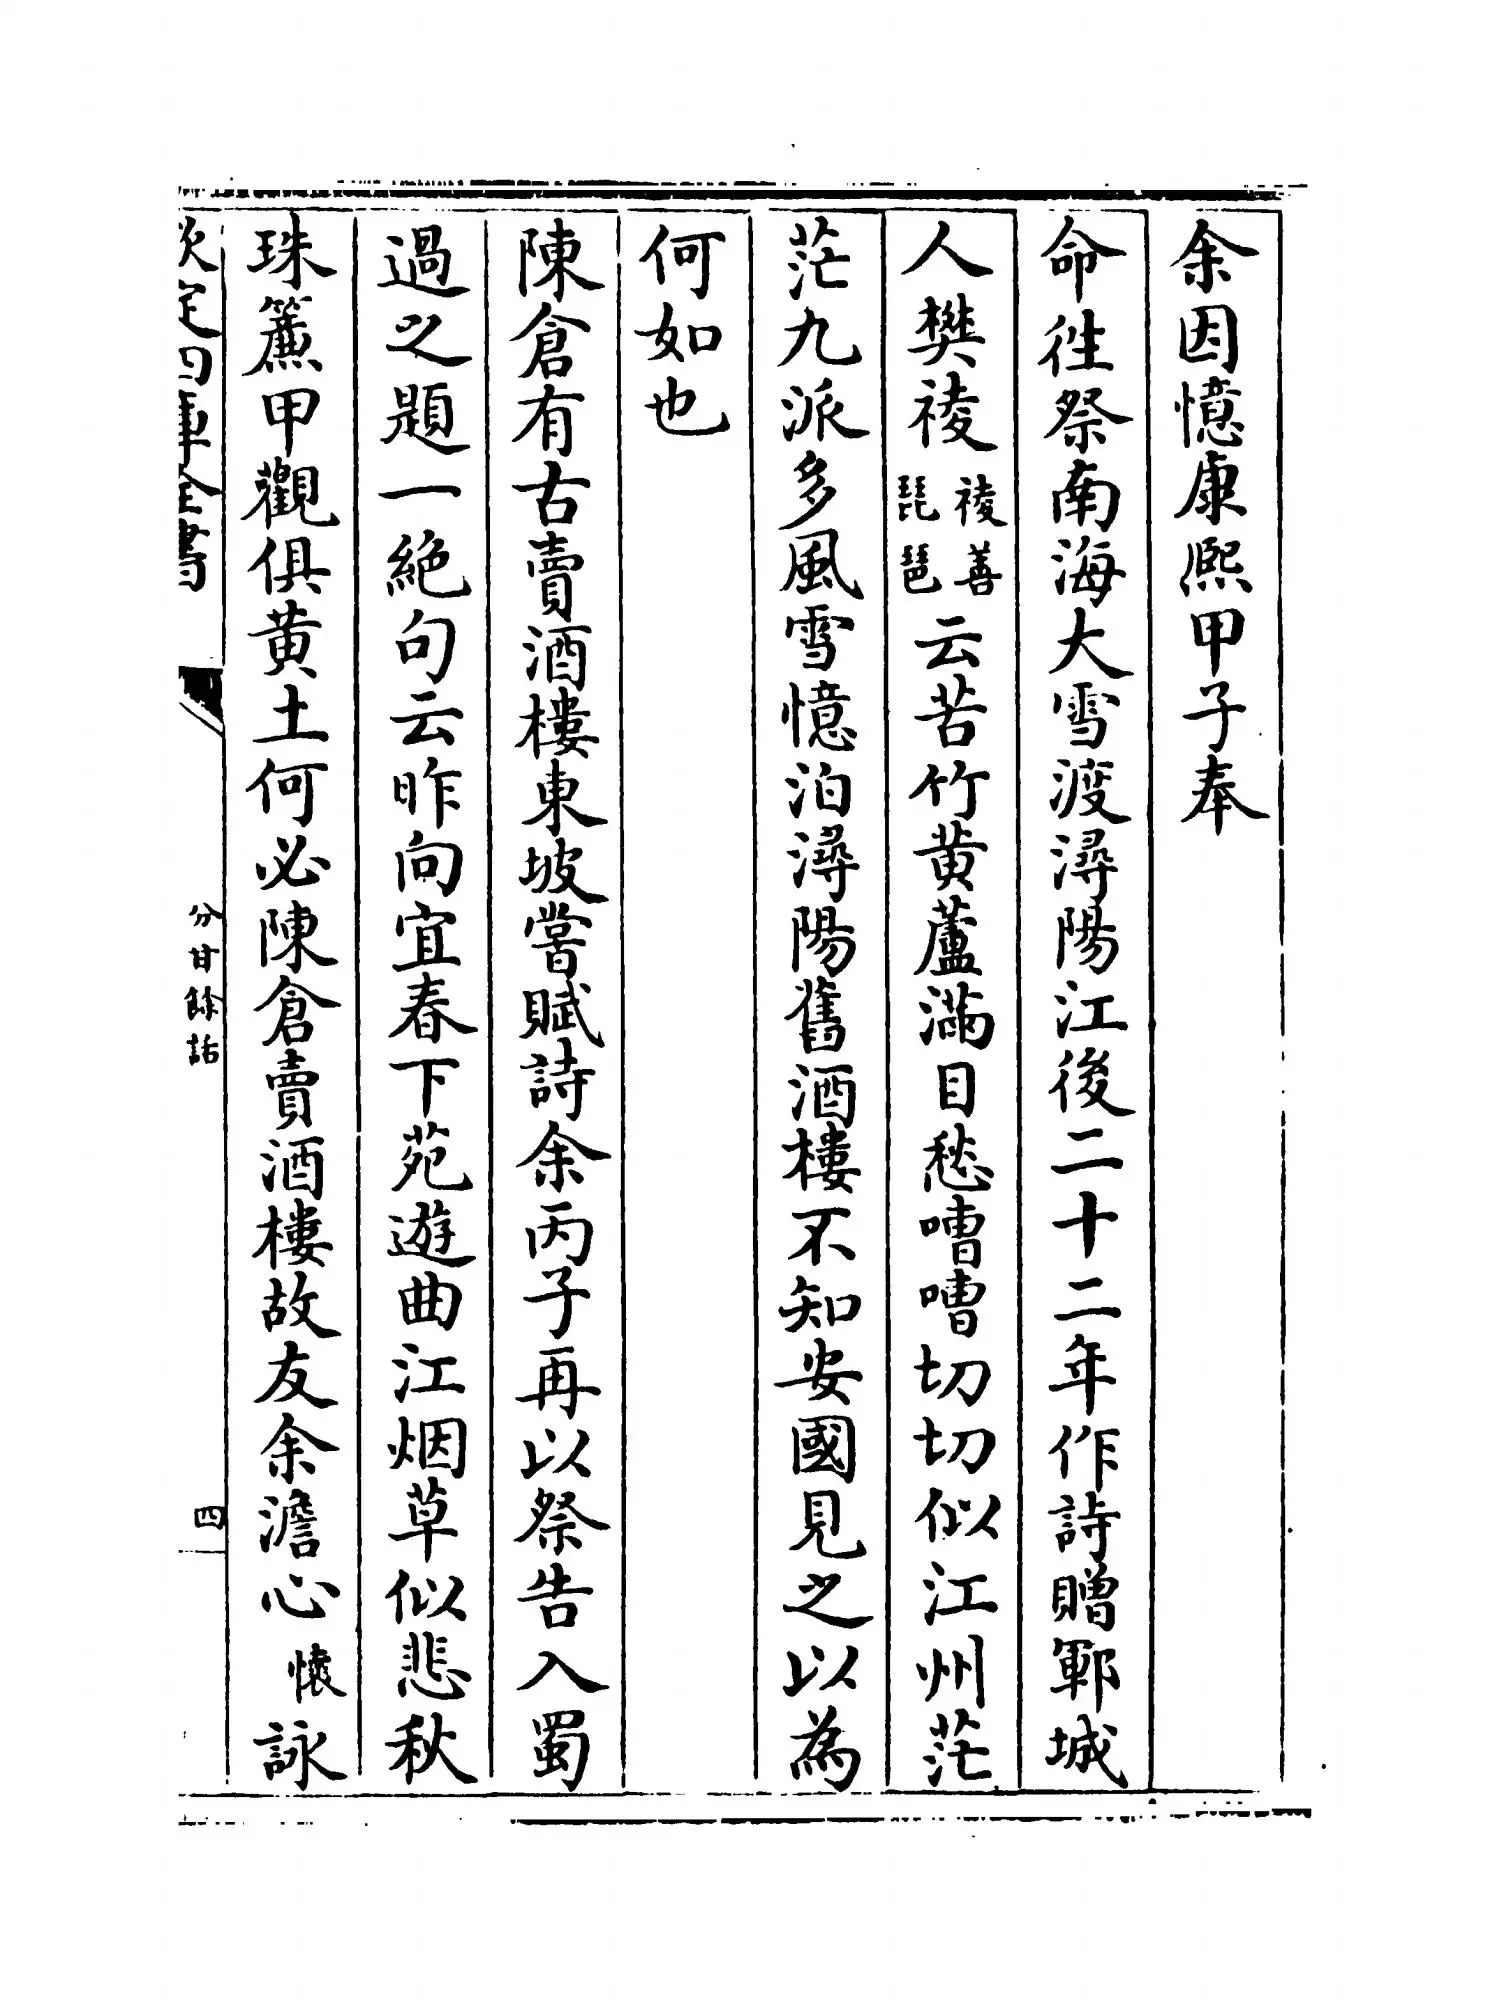 余因憶康熙甲子奉
命徃祭南海大雪渡潯陽江後二十二年作詩贈鄆城
人樊祾祾善琵琶云苦竹黄蘆滿目愁嘈嘈切切似江州茫
茫九派多風雪憶泊潯陽舊酒樓不知安國見之以為
何如也
陳倉有古賣酒樓東坡嘗賦詩余丙子再以祭告入蜀
過之題一絶句云昨向宜春下苑遊曲江烟草似悲秋
珠簾甲觀俱黄土何必陳倉賣酒樓故友余澹心懷詠
欽定四庫全書
分甘餘話
四